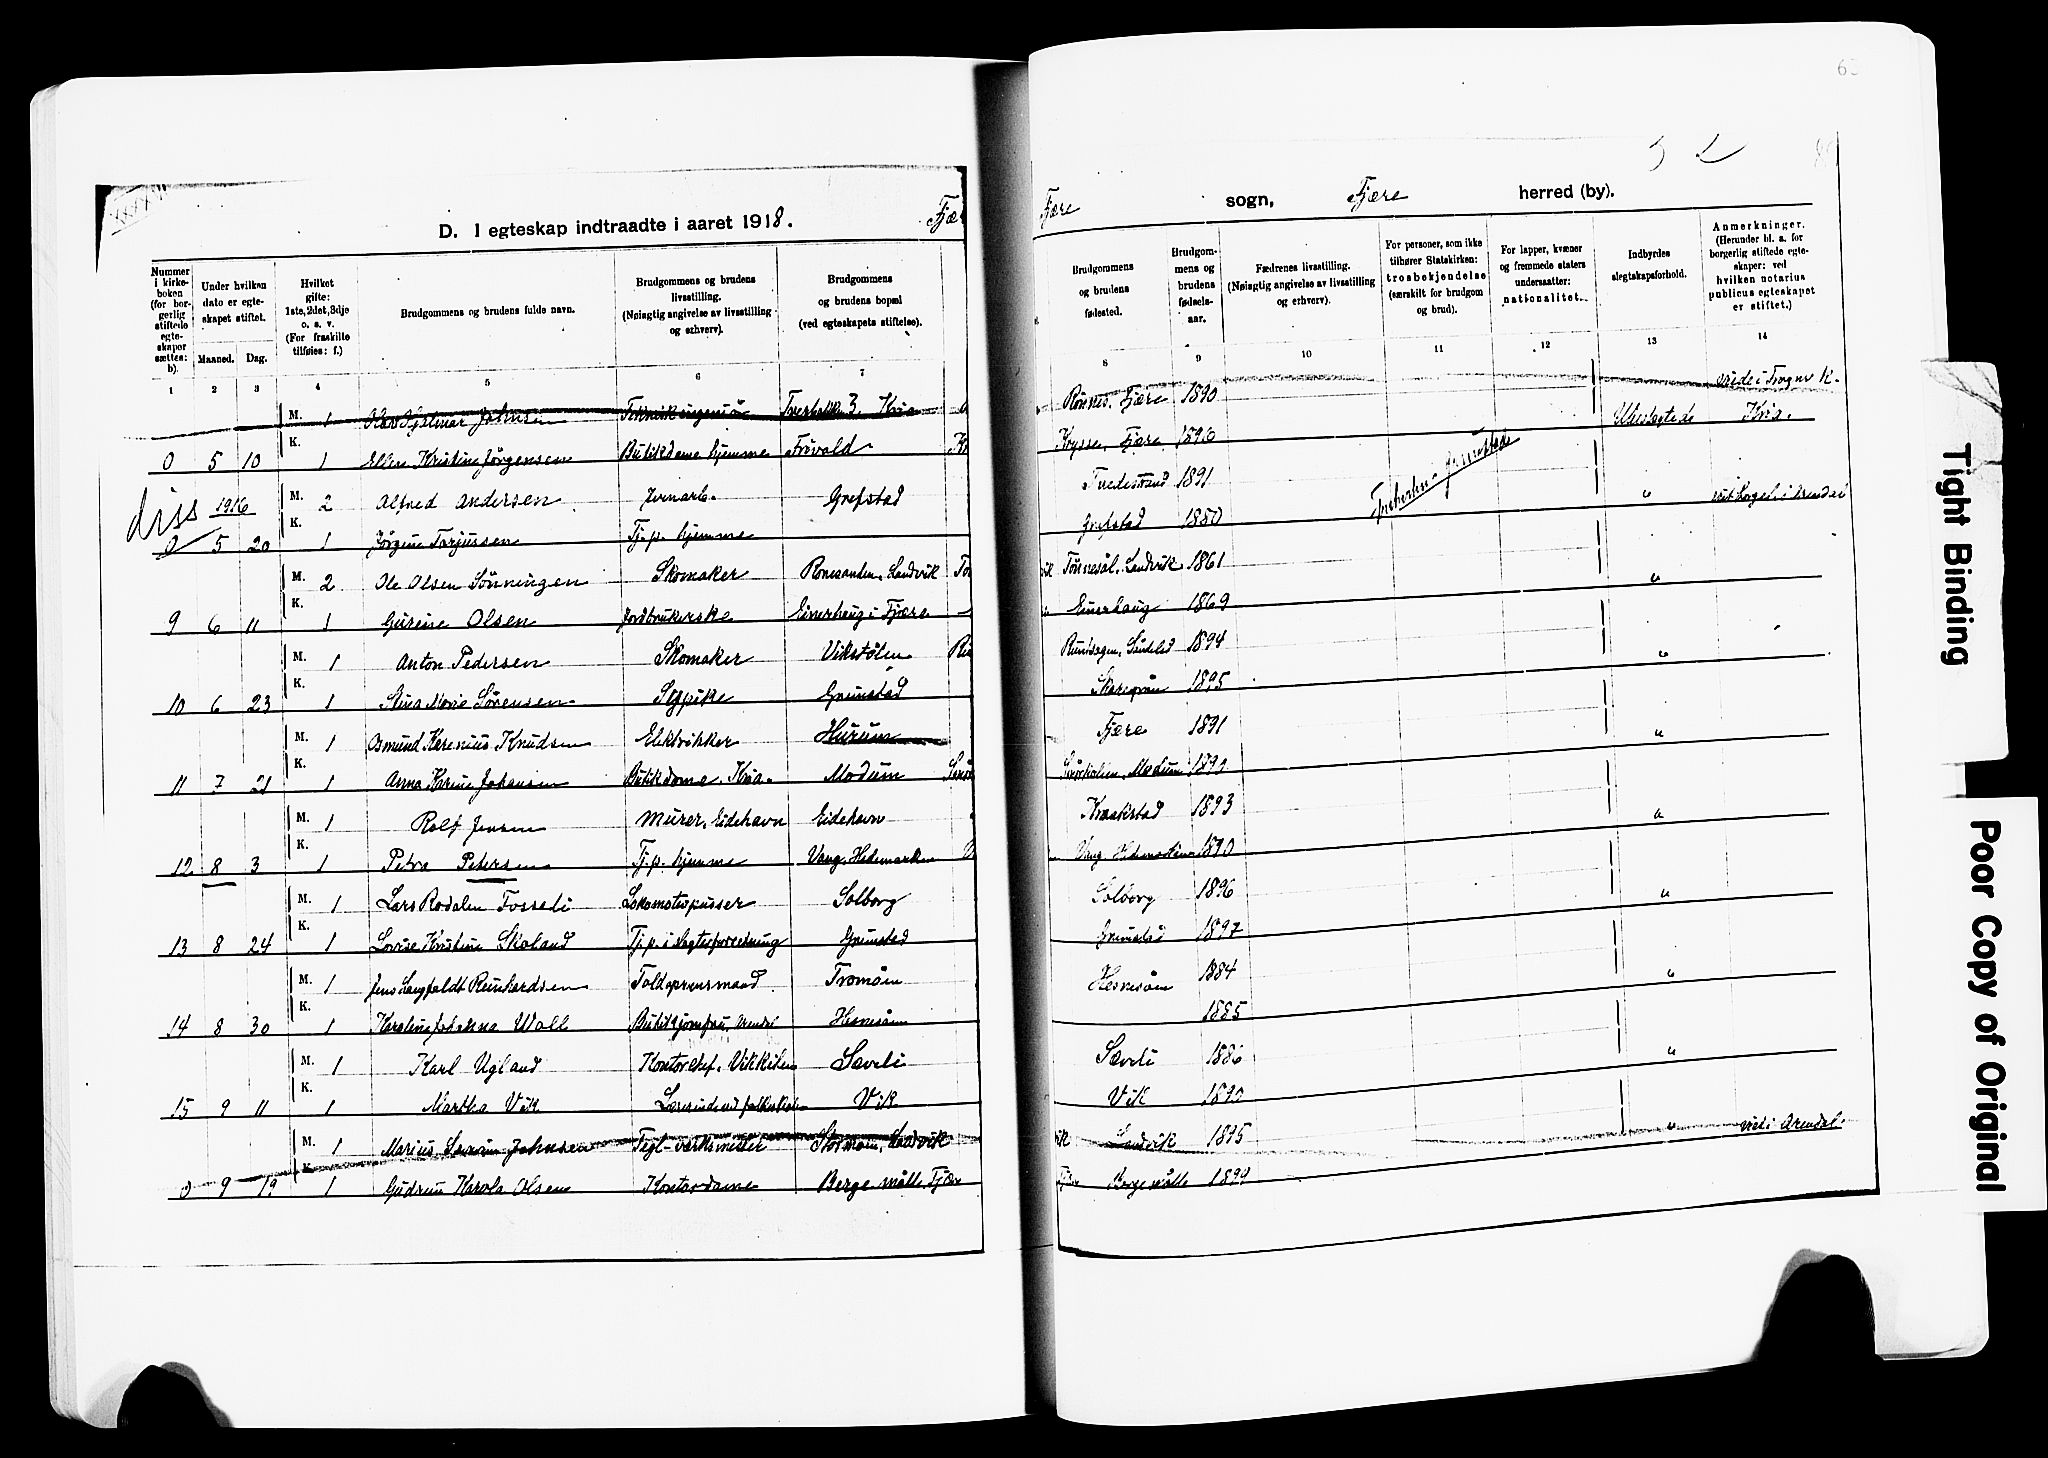 63
3 2
D. I egteskap indtraadte i aaret 1918. Fjær
Fjære sogn, Fjære herred (by).
Nummer i kirkeboken (for borgerlig stiftede egteskaper sættes: b).
Under hvilken dato er egteskapet stiftet.
Maaned. Dag.
Hvilket gifte: 1ste, 2det, 3dje o. s. v. (For fraskilte tilføies: f.)
Brudgommens og brudens fulde navn.
Brudgommens og brudens livsstilling. (Nøiagtig angivelse av livsstilling og erhverv).
Brudgommens og brudens bopæl (ved egteskapets stiftelse).
Brudgommens og brudens fødested.
Brudgommens og brudens fødselsaar.
Fædrenes livsstilling. (Nøiagtig angivelse av livsstilling og erhverv).
For personer, som ikke tilhører Statskirken: trosbekjendelse (særskilt for brudgom og brud).
For lapper, kvæner og fremmede staters undersaatter: nationalitet.
Indbyrdes slegtskapsforhold.
Anmerkninger. (Herunder bl. a. for borgerlig stiftede egteskaper: ved hvilken notarius publicus egteskapet er stiftet.)
1 2 3 4 5 6 7 8 9 10 11 12 13 14
M. 1 Hjalmar Johnsen Kria Rønnes, Fjære 1890 Ubeslegtede viede i Kria.
0 5 10 K. 1 Kristine Jørgensen Butikdame hjemme Frivold Fjære 1896
diss 1916 M. 2 Alfred Andersen Jernarb. Grefstad Tvedestrand 1891 "
0 5 20 K. 1 Jørgine Torjussen Tj. p. hjemme Grefstad 1880
M. 2 Ole Olsen Sønningen Skomaker Landvik Tønnesøl, Landvik 1861 "
9 6 11 K. 1 Gurine Olsen Jordbrukerske Einerhaug i Fjære Einerhaug 1869
M. 1 Anton Pedersen Skomaker Vikstølen 1894 "
10 6 23 K. 1 Stina Marie Sørensen Sypike Grimstad 1895
M. 1 Osmund Karenius Knudsen Elektrikker Hurum Fjære 1891 "
11 7 21 K. 1 Anna Karine Johansen Butikdame, Kria. Modum Modum 1890
M. 1 Rolf Jensen Murer, Eidehavn Eidehavn Kraakstad 1893 "
12 8 3 K. 1 Petra Petersen Tj. p. hjemme Vang, Hedemarken Vang 1890
M. 1 Lars Rodalen Fosseli Lokomotivpusser Solborg Solborg 1896 "
13 8 24 K. 1 Lovise Kristine Skoland Tj. p. i slagterforretning Grimstad Grimstad 1897
M. 1 Jens Langfeldt Reinhardsen Toldopsynsmand Tromøen Hesnesøen 1884 "
14 8 30 K. 1 Karoline Johanna Woll Butikjomfru, Arendal Hesnesøen 1885
M. 1 Karl Ugland Kontorchef, Vikkilen Sævli Sævli 1886 "
15 9 11 K. 1 Martha Vik Lærerinde ved folkeskolen Vik Vik 1890
M. 1 Marius Severin Johnsen Tegl-verksmester Landvik Landvik 1895 " viet i Arendal.
0 9 19 K. 1 Gudrun Karola Olsen Kontordame Bergemålle, Fjære Bergemålle 1899
Tight Binding
Poor Copy of Original